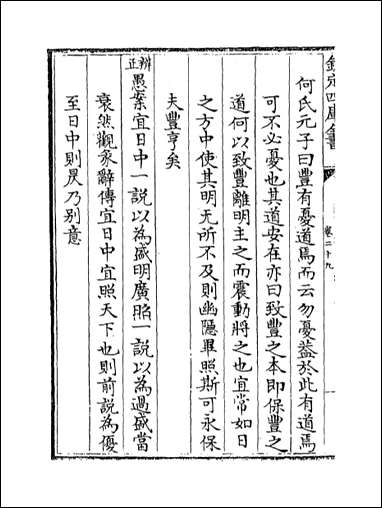 欽定四庫全書
卷二十九
何氏元子曰豐有憂道焉而云勿憂益於此有道焉
可不必憂也其道安在亦曰致豐之本即保豐之
道何以致豐離明主之而震動將之也宜常如日
之方中使其明无所不及則幽隱畢照斯可永保
夫豐亨矣
辨正愚案宜日中一說以為盛明廣照一說以為過盛當
衰然觀彖辭傳宜日中宜照天下也則前說為優
至日中則昃乃别意